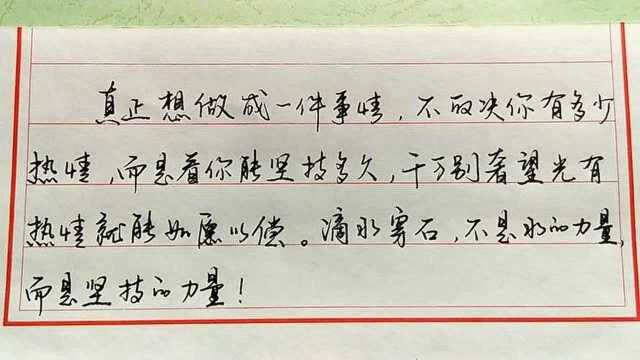 真正想做成一件事情，不取决你有多少
热情，而是看你能坚持多久，千万别奢望光有
热情就能如愿以偿。滴水穿石，不是水的力量，
而是坚持的力量！